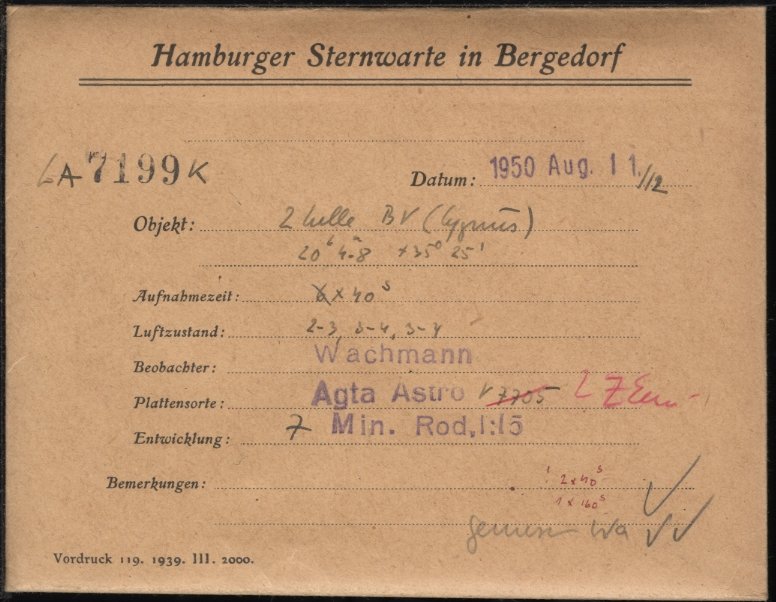 Hamburger Sternwarte in Bergedorf
LA 7199 K
Datum: 1950 Aug. 11./12
Objekt: 2 helle BV (Cygnus)
20ʰ 4ᵐ8 +35° 25'
Aufnahmezeit: 6×40ˢ
Luftzustand: 2-3, 3-4, 3-4
Beobachter: Wachmann
Plattensorte: Agfa Astro V 7705 L
Entwicklung: 7 Min. Rod, 1:15
Bemerkungen: 2×40ˢ
1×160ˢ
gemessen Wa
Vordruck 119. 1939. III. 2000.